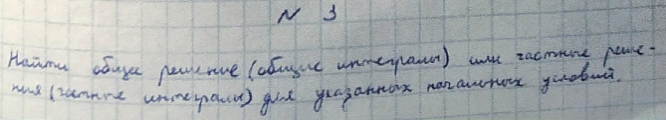 N 3
Найти общее решение (общие интегралы) или частные реше-
ния (частные интегралы) для указанных начальных условий.